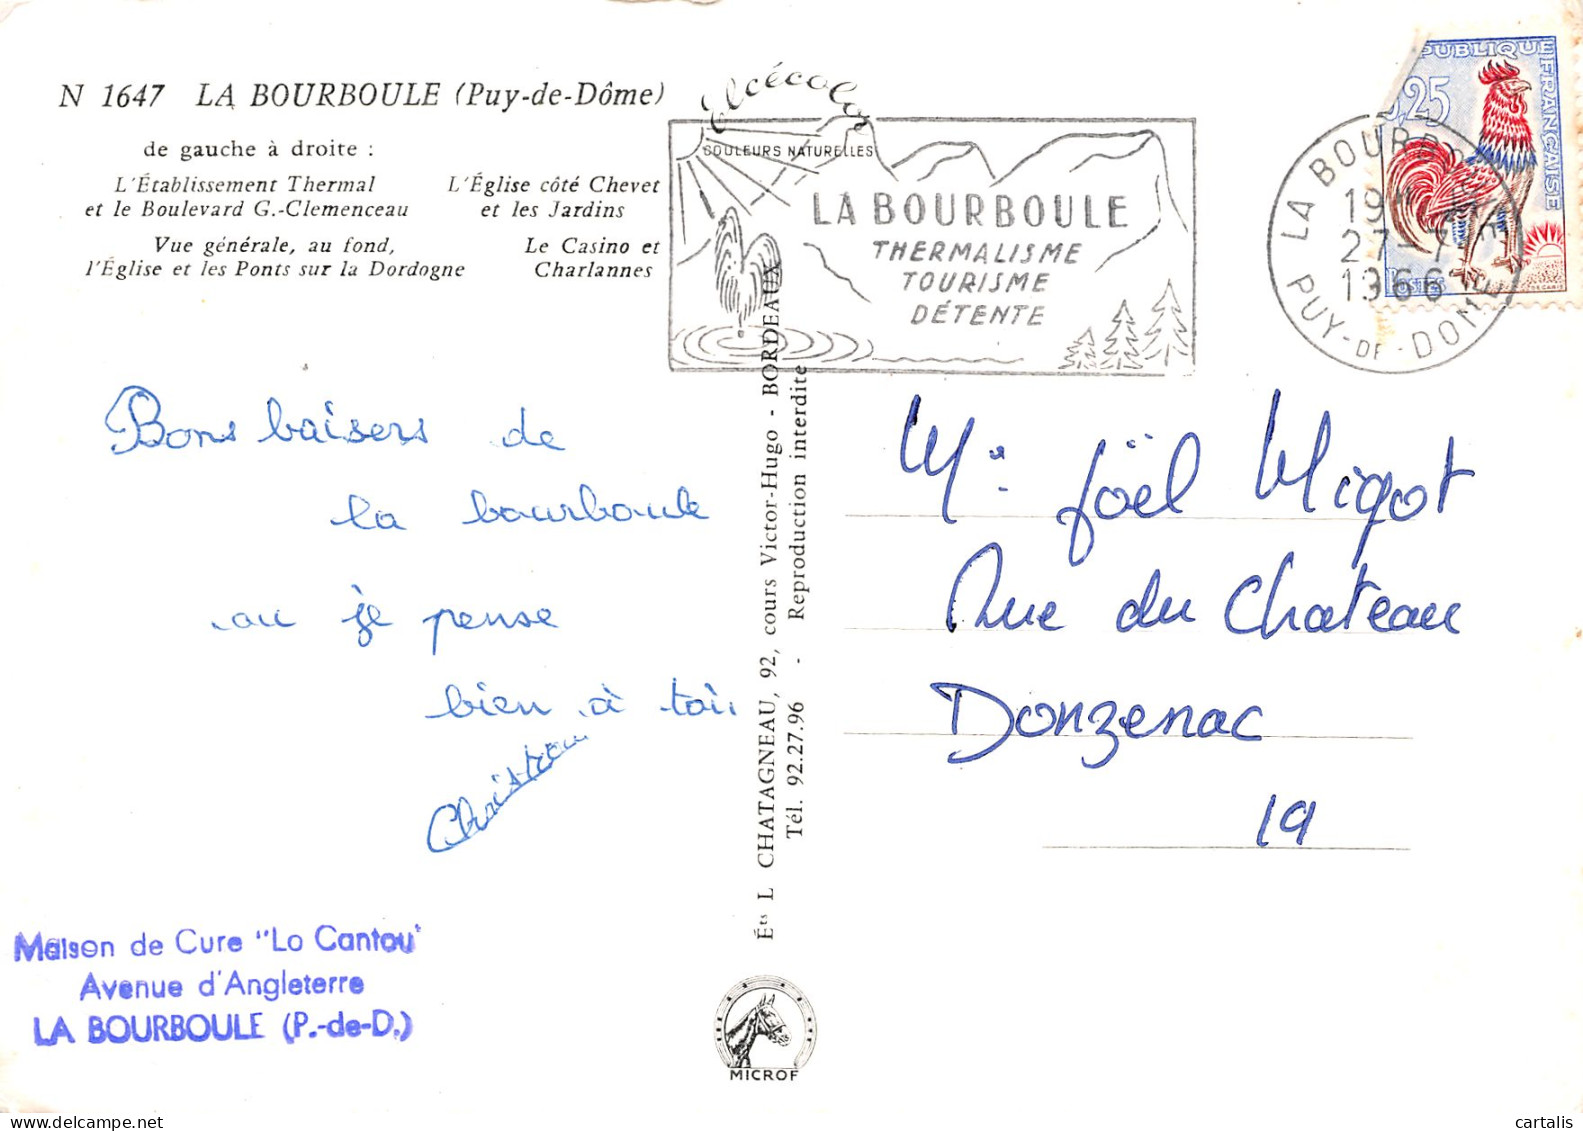 N 1647 LA BOURBOULE (Puy-de-Dôme)
de gauche à droite :
L'Établissement Thermal
et le Boulevard G.-Clemenceau
L'Église côté Chevet
et les Jardins
Vue générale, au fond,
l'Église et les Ponts sur la Dordogne
Le Casino et
Charlannes
Elcécolor
COULEURS NATURELLES
LA BOURBOULE
THERMALISME
TOURISME
DÉTENTE
LA BOURBOULE
19H
27-7
1966
PUY-DE-DOME
RÉPUBLIQUE FRANÇAISE
0,25
POSTES
DECARIS
Bons baisers de
la bourboule
ou je pense
bien à toi.
Mr Joël Migot
Rue du Chateau
Donzenac
19
Éts L CHATAGNEAU, 92, cours Victor-Hugo - BORDEAUX
Tél. 92.27.96 - Reproduction interdite
Maison de Cure "Lo Cantou"
Avenue d'Angleterre
LA BOURBOULE (P.-de-D.)
MICROF
cartalis
www.delcampe.net